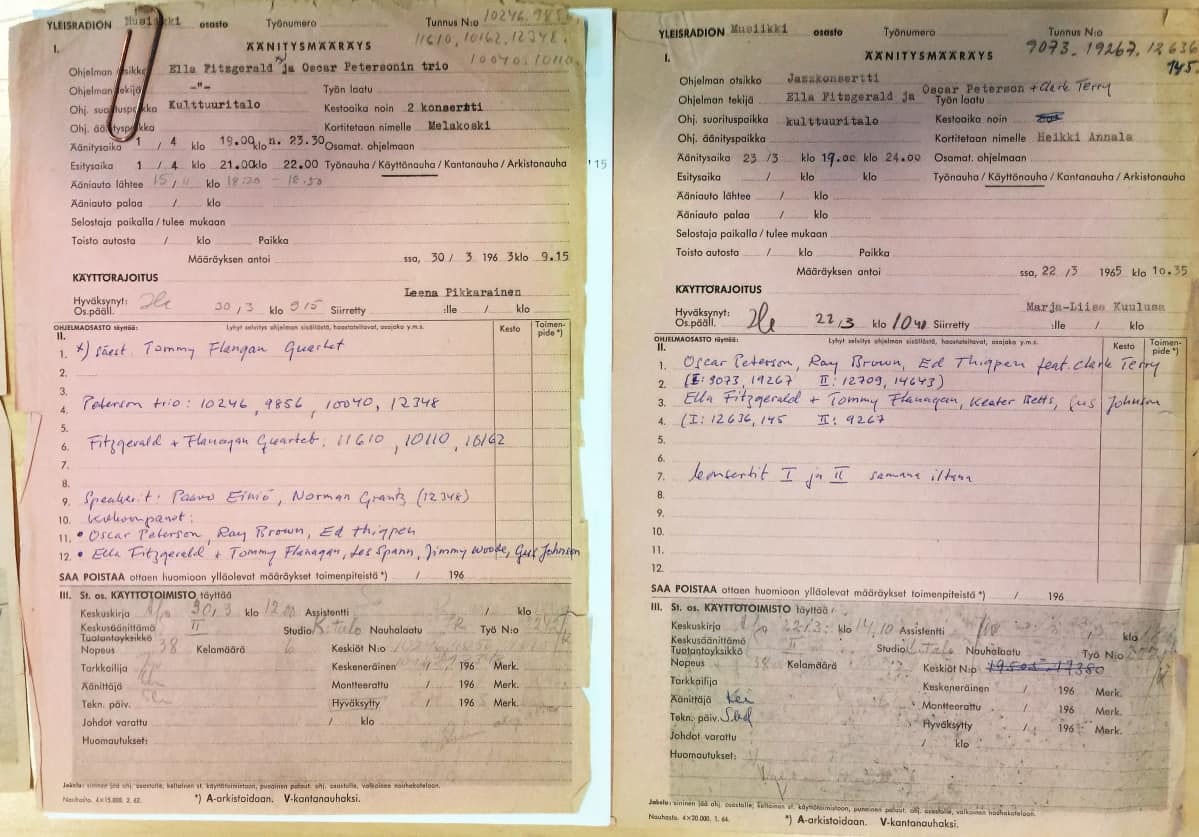 YLEISRADION Musiikki osasto Työnumero Tunnus N:o 10246, 9856,
11610, 10162, 12348,
I. ÄÄNITYSMÄÄRÄYS 10040, 10110
Ohjelman otsikko Ella Fitzgerald ja Oscar Petersonin trio
Ohjelman tekijä -"- Työn laatu
Ohj. suorituspaikka Kulttuuritalo Kestoaika noin 2 konsertti
Ohj. äänityspaikka Kortitetaan nimelle Melakoski
Äänitysaika 1 / 4 klo 19.00 klo n. 23.30 Osamat. ohjelmaan
Esitysaika 1 / 4 klo 21.00 klo 22.00 Työnauha / Käyttönauha / Kantanauha / Arkistonauha
Ääniauto lähtee 15 / klo 18:20 - 18.50
Ääniauto palaa / klo
Selostaja paikalla / tulee mukaan
Toisto autosta / klo Paikka
Määräyksen antoi ssa, 30 / 3 196 3 klo 9.15
KÄYTTÖRAJOITUS
Leena Pikkarainen
Hyväksynyt: 30 / 3 klo 915 Siirretty :lle / klo
Os.pääll.
OHJELMAOSASTO täyttää: Lyhyt selvitys ohjelman sisällöstä, haastateltavat, osajako y.m.s. Kesto Toimen-
pide *)
II.
1. *) säest. Tommy Flangan Quartet
2.
3.
4. Peterson trio: 10246, 9856, 10040, 12348
5.
6. Fitzgerald + Flanagan Quartet: 11610, 10110, 10162
7.
8.
9. Speakerit: Paavo Einiö, Norman Grantz (12348)
10. Kokoonpanot:
11. • Oscar Peterson, Ray Brown, Ed Thigpen
12. • Ella Fitzgerald + Tommy Flanagan, Les Spann, Jimmy Woode, Gus Johnson
SAA POISTAA ottaen huomioon ylläolevat määräykset toimenpiteistä *) / 196
III. St. os. KÄYTTÖTOIMISTO täyttää
Keskuskirja 30.3 klo 12.00 Assistentti / klo
Keskusäänittämö II Studio K.talo Nauhalaatu Työ N:o
Tuotantoyksikkö
Nopeus 38 Kelamäärä 6 Keskiöt N:o
Tarkkailija Keskeneräinen / 196 Merk.
Äänittäjä Montteerattu / 196 Merk.
Tekn. päiv. Hyväksytty / 196 Merk.
Johdot varattu / klo
Huomautukset:
Jakelu: sininen jää ohj. osastolle, keltainen st. käyttötoimistoon, punainen palaut. ohj. osastolle, valkoinen nauhakoteloon.
Nauhasto. 4×15.000. 2. 62. *) A-arkistoidaan. V-kantanauhaksi.
'15
YLEISRADION Musiikki osasto Työnumero Tunnus N:o
9073, 19267, 12636
145.
I. ÄÄNITYSMÄÄRÄYS
Ohjelman otsikko Jazzkonsertti
Ohjelman tekijä Ella Fitzgerald ja Oscar Peterson + Clark Terry Työn laatu
Ohj. suorituspaikka kulttuuritalo Kestoaika noin
Ohj. äänityspaikka Kortitetaan nimelle Heikki Annala
Äänitysaika 23 /3 klo 19.00 klo 24.00 Osamat. ohjelmaan
Esitysaika / klo klo Työnauha / Käyttönauha / Kantanauha / Arkistonauha
Ääniauto lähtee / klo
Ääniauto palaa / klo
Selostaja paikalla / tulee mukaan
Toisto autosta / klo Paikka
Määräyksen antoi ssa, 22 /3 1965 klo 10.35
KÄYTTÖRAJOITUS
Marja-Liisa Kuulusa
Hyväksynyt: 22/3 klo 1040 Siirretty :lle / klo
Os.pääll.
OHJELMAOSASTO täyttää: Lyhyt selvitys ohjelman sisällöstä, haastateltavat, osajako y.m.s. Kesto Toimen-
pide *)
II.
1. Oscar Peterson, Ray Brown, Ed Thigpen feat. Clark Terry
2. (I: 9073, 19267 II: 12709, 14643)
3. Ella Fitzgerald + Tommy Flanagan, Keater Betts, Gus Johnson
4. (I: 12636, 145 II: 9267
5.
6.
7. konsertit I ja II samana iltana
8.
9.
10.
11.
12.
SAA POISTAA ottaen huomioon ylläolevat määräykset toimenpiteistä *) / 196
III. St. os. KÄYTTÖTOIMISTO täyttää:
Keskuskirja 22.3. klo 14.10 Assistentti klo
Keskusäänittämö Studio K.talo Nauhalaatu Työ N:o
Tuotantoyksikkö
Nopeus 38 Kelamäärä Keskiöt N:o
Tarkkailija Keskeneräinen / 196 Merk.
Äänittäjä Kei Montteerattu / 196 Merk.
Tekn. päiv. Hyväksytty / 196 Merk.
Johdot varattu / klo
Huomautukset:
Jakelu: sininen jää ohj. osastolle, keltainen st. käyttötoimistoon, punainen palaut. ohj. osastolle, valkoinen nauhakoteloon.
Nauhasto. 4×20.000. 1. 64. *) A-arkistoidaan. V-kantanauhaksi.